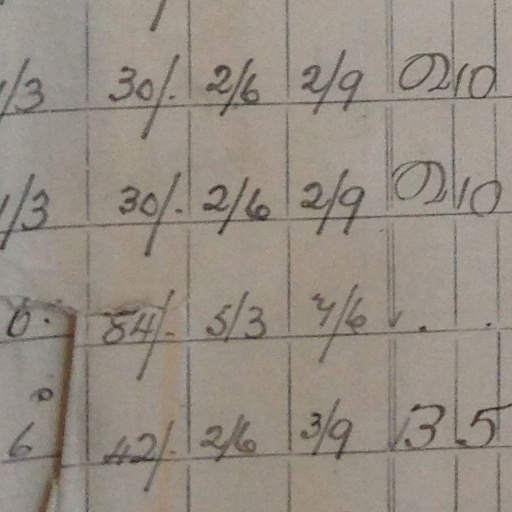 /3 30/. 2/6 2/9 0210
/3 30/. 2/6 2/9 0210
6. 84/. 5/3 4/6 . .
6 42/. 2/6 3/9 13 5